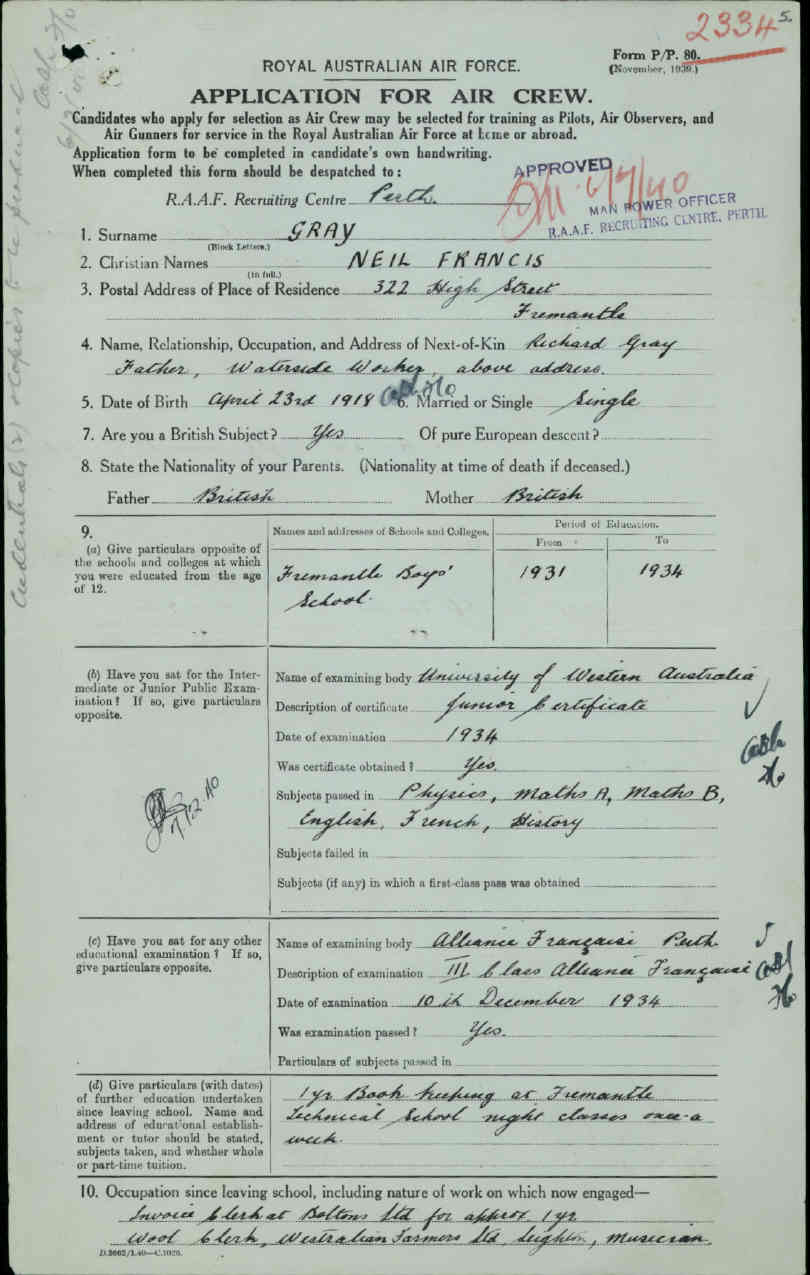 2334
5.
Form P/P. 80.
(November, 1939.)
ROYAL AUSTRALIAN AIR FORCE.
APPLICATION FOR AIR CREW.
Candidates who apply for selection as Air Crew may be selected for training as Pilots, Air Observers, and
Air Gunners for service in the Royal Australian Air Force at home or abroad.
Application form to be completed in candidate's own handwriting.
When completed this form should be despatched to:
APPROVED
6/7/40
MAN POWER OFFICER
R.A.A.F. RECRUITING CENTRE, PERTH
R.A.A.F. Recruiting Centre Perth.
1. Surname GRAY
(Block Letters.)
2. Christian Names NEIL FRANCIS
(In full.)
3. Postal Address of Place of Residence 322 High Street
Fremantle
4. Name, Relationship, Occupation, and Address of Next-of-Kin Richard Gray
Father, Waterside Worker, above address.
5. Date of Birth April 23rd 1918 6. Married or Single Single
7. Are you a British Subject? Yes Of pure European descent?
8. State the Nationality of your Parents. (Nationality at time of death if deceased.)
Father British Mother British
9.
(a) Give particulars opposite of
the schools and colleges at which
you were educated from the age
of 12.
Names and addresses of Schools and Colleges.
Period of Education.
From
To
Fremantle Boys'
School.
1931
1934
(b) Have you sat for the Inter-
mediate or Junior Public Exam-
ination? If so, give particulars
opposite.
11.12.40
Name of examining body University of Western Australia
Description of certificate Junior Certificate
Date of examination 1934
Was certificate obtained? Yes.
Subjects passed in Physics, Maths A, Maths B,
English, French, History
Subjects failed in
Subjects (if any) in which a first-class pass was obtained
(c) Have you sat for any other
educational examination? If so,
give particulars opposite.
Name of examining body Alliance Françaisi Perth
Description of examination III Class Alliance Françaisi
Date of examination 10th December 1934
Was examination passed? Yes.
Particulars of subjects passed in
(d) Give particulars (with dates)
of further education undertaken
since leaving school. Name and
address of educational establish-
ment or tutor should be stated,
subjects taken, and whether whole
or part-time tuition.
1 yr Book keeping at Fremantle
Technical School night classes once a
week.
10. Occupation since leaving school, including nature of work on which now engaged—
Invoice Clerk at Boltons Ltd for approx 1 yr
Wool Clerk, Westralian Farmers Ltd, Leighton, Musician.
D.3662/1.40—C.1026.